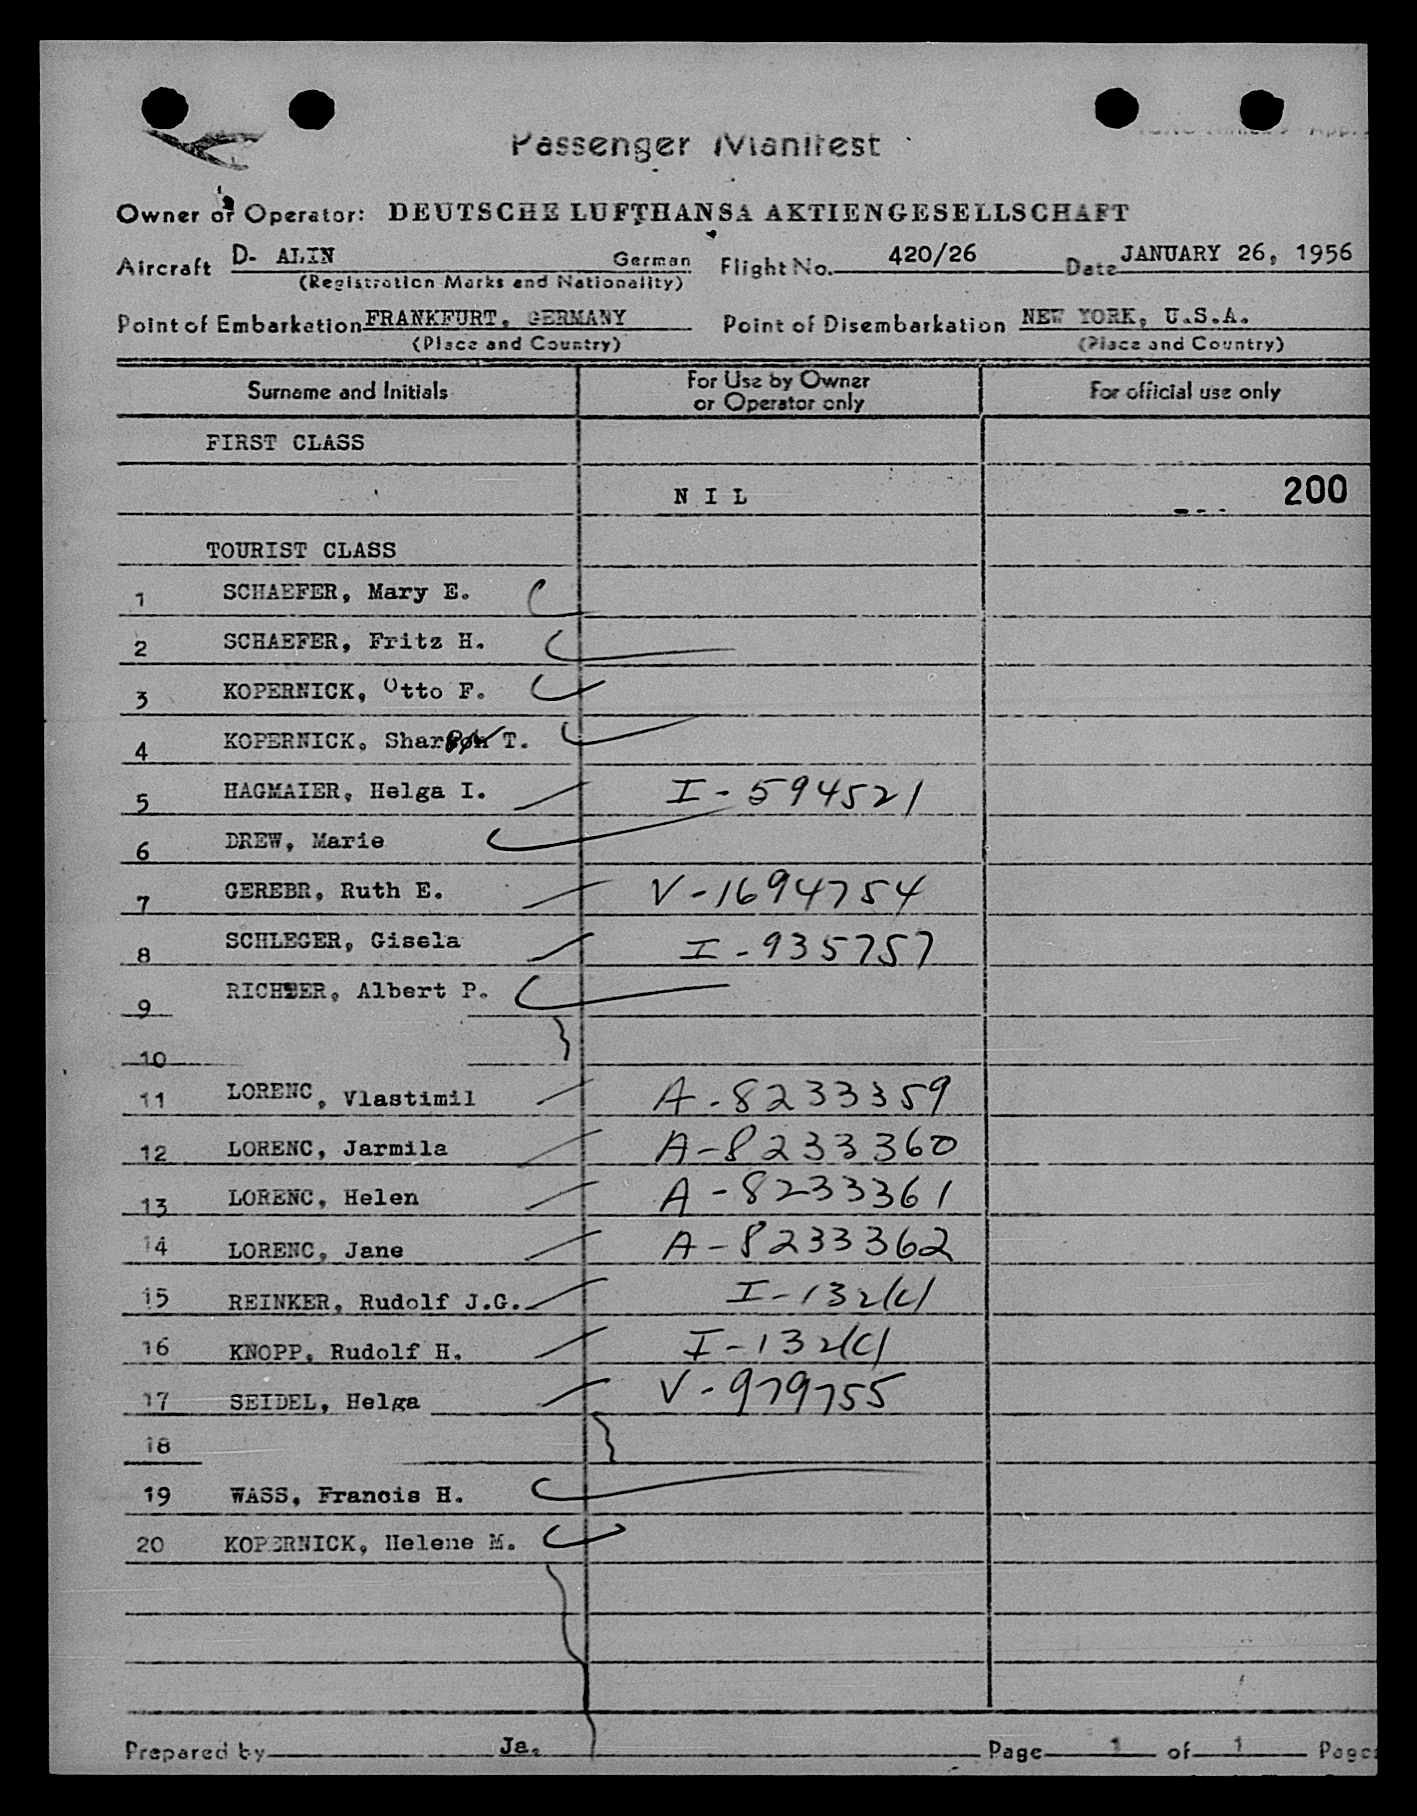 Passenger Manifest
Owner or Operator: DEUTSCHE LUFTHANSA AKTIENGESELLSCHAFT
Aircraft D- ALIN German Flight No. 420/26 Date JANUARY 26, 1956
(Registration Marks and Nationality)
Point of Embarkation FRANKFURT, GERMANY Point of Disembarkation NEW YORK, U.S.A.
(Place and Country) (Place and Country)
Surname and Initials For Use by Owner or Operator only For official use only
FIRST CLASS
N I L 200
TOURIST CLASS
1 SCHAEFER, Mary E.
2 SCHAEFER, Fritz H.
3 KOPERNICK, Otto F.
4 KOPERNICK, Sharon T.
5 HAGMAIER, Helga I. I-594521
6 DREW, Marie
7 GEREBR, Ruth E. V-1694754
8 SCHLEGER, Gisela I-935757
9 RICHTER, Albert P.
10
11 LORENC, Vlastimil A-8233359
12 LORENC, Jarmila A-8233360
13 LORENC, Helen A-8233361
14 LORENC, Jane A-8233362
15 REINKER, Rudolf J.G.
16 KNOPP, Rudolf H.
17 SEIDEL, Helga V-979755
18
19 WASS, Francis H.
20 KOPERNICK, Helene M.
Prepared by Ja. Page 1 of 1 Pages